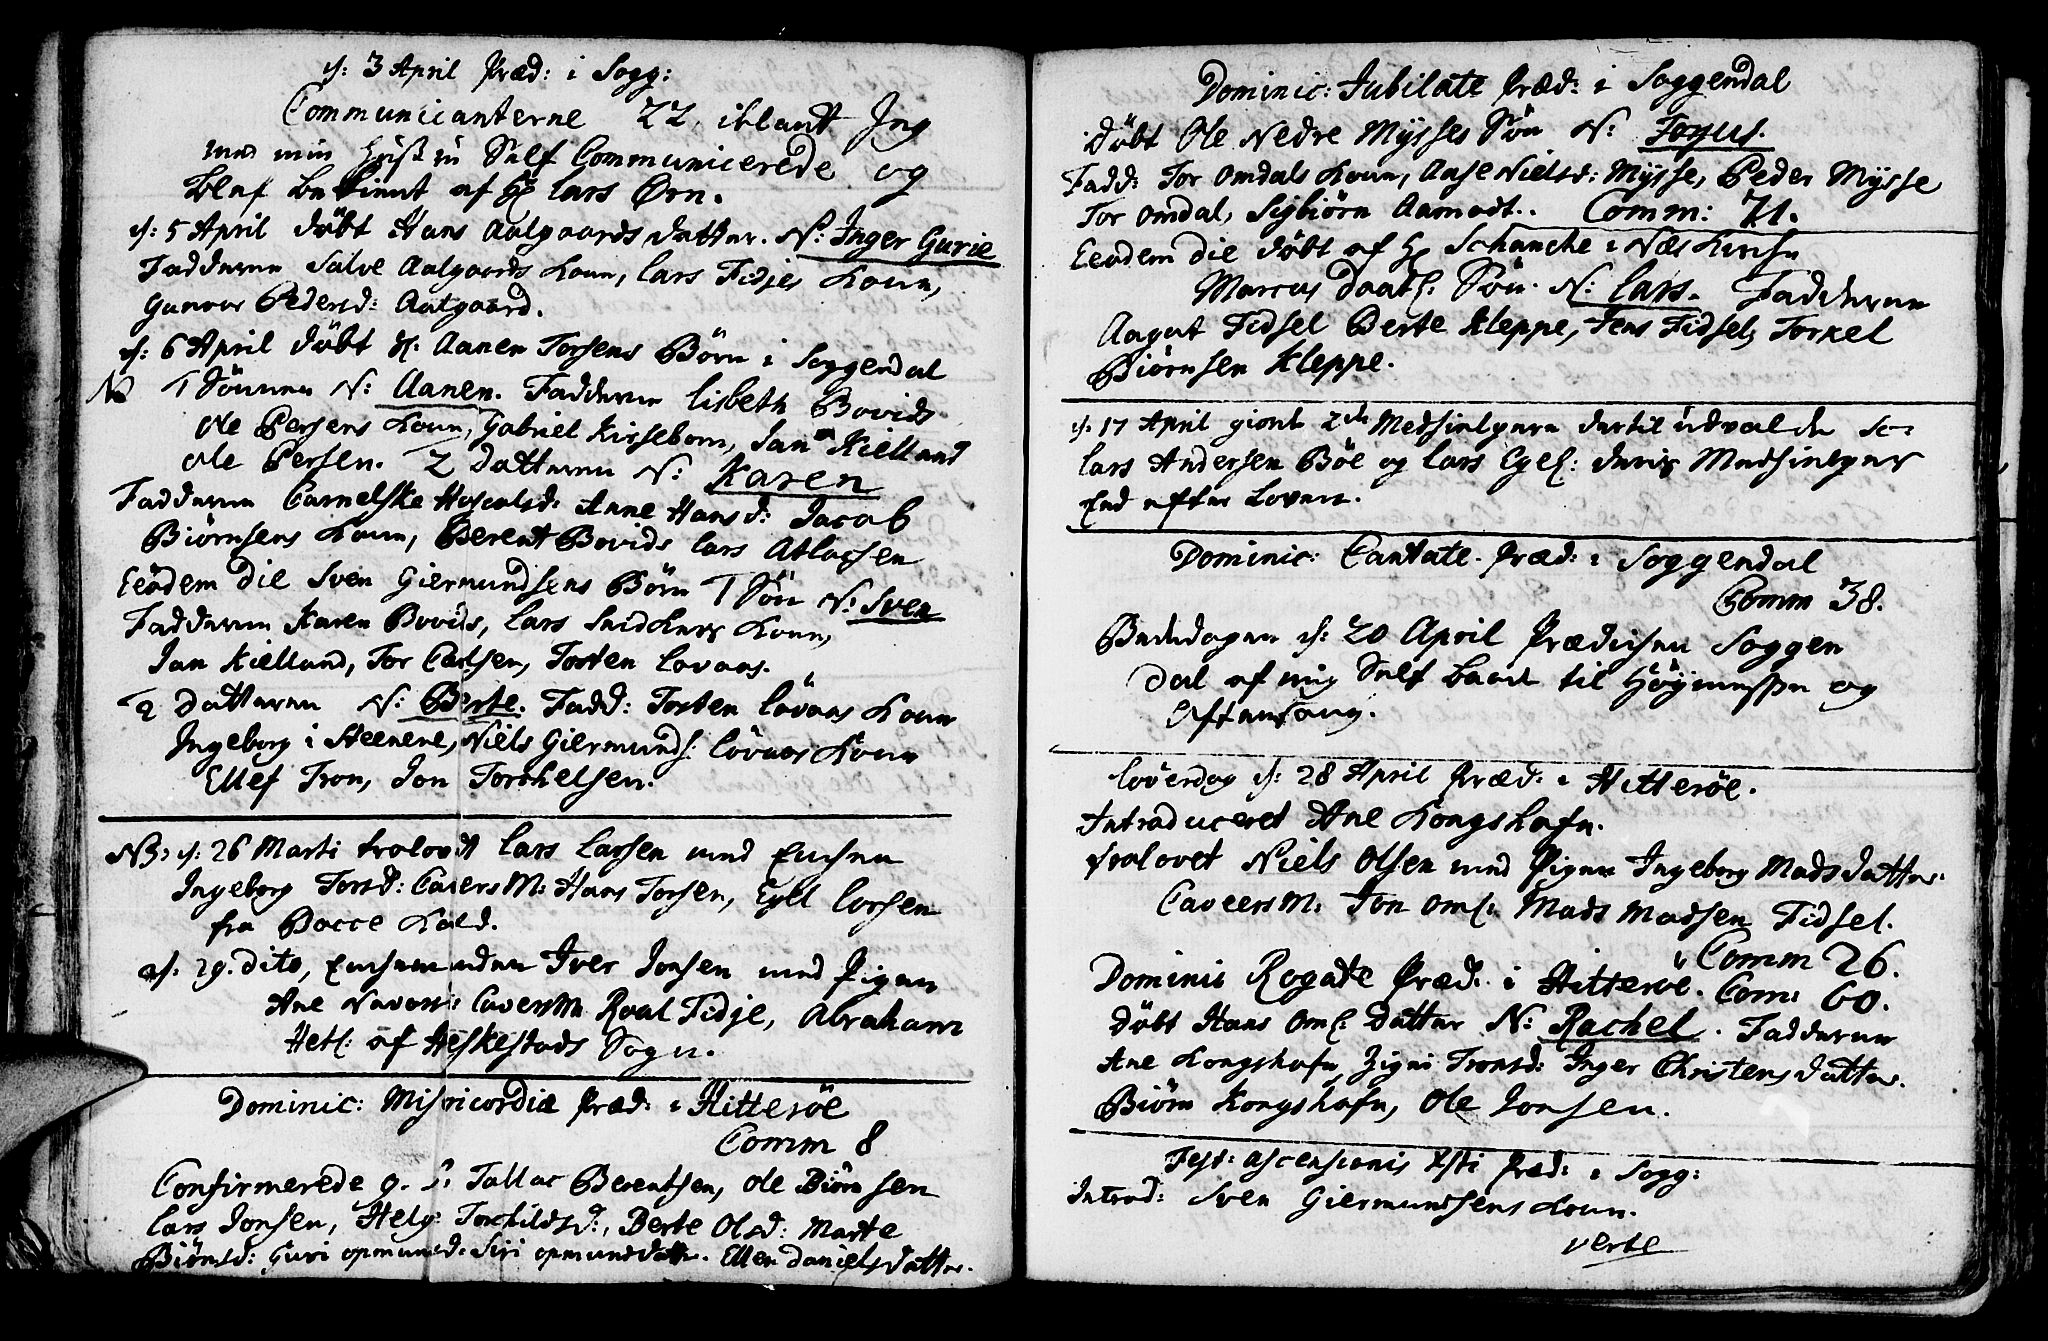 d: 3 April Præd: i Sogg:
Communicanterne 22, iblant Jeg
med min Hustru Self Communicerede og
blef betient af Hr Lars Ørn.
d: 5 April døbt Hans Aalgaards datter. N: Inger Gurie
Fadderne Salve Aalgaards Kone, Lars Fidjes Kone,
Gunvor Pedersd: Aalgaard.
d: 6 April døbt Aanen Torsens Børn i Soggendal
1 Sønnen N: Aanen. Fadderne Lisbeth Bovids
Ole Persens Kone, Gabriel Kirsebom, Jan Kielland
Ole Persen. 2 datteren N: Karen
Fadderne Carnelske Anne Hansd: Jacob
Biørnsens Kone, Berent Bovids Lars Atlacsen
Eeodem die Sven Giermundsens Børn 1 Søn N: Sven
Fadderne Karen Bovids, Lars Snidkers Kone,
Jan Kielland, Tor Carlsen, Torsten Lovaas.
2 datteren N: Berte. Fadd: Torsten Løvaas Kone
Ingeborg i Steenene, Niels Giermunds: Løvaas Kone
Ellef Tron, Jon Torchelsen.
NB: d: 26 Marti trolovdt Lars Larsen med Enchen
Ingeborg Torsd: Caversm: Hans Torsen, Eyll Larsen
fra Bacce Kald.
d: 29. dito, Enchemanden Iver Jonsen med Pigen
Ane Caversm Roal Fidje, Abraham
Hetl: af Heskestads Sogn.
Dominic: Misricordiæ Præd: i Hitterøe
Comm 8
Confirmerede 9. S: Tallac Berentsen, Ole Biørnsen
Lars Jonsen, Helg: Torchildsd:, Berte Olsd: Marte
Biørnsd: Guri opmunsd: Siri opmunsdatter. Ellen Danielsdatter.
Dominic: Jubilate Præd: i Soggendal
døbt Ole Nedre Mysses Søn N:
Fadd: Tor Omdals Kone, Aase Nielsd: Mysse, Peder Mysse
Tor Omdal, Sigbiørn Aamodt.. Comm: 71.
Eeodem die døbt af Hr Schanche i Næs Kirche
Marcus Daatl: Søn. N: Lars. Fadderne
Aagot Fidsel Berte Kleppe, Jens Fidsel, Torkel
Biørnsen Kleppe.
d: 17 April giort 2de Medhielpere dertil udvalde
Lars Andersen Bøe og Lars Egel: deris Medhielpers
Eed efter Loven.
Dominic: Cantate. Præd: i Soggendal
Comm 38.
Bededagen d: 20 April Prædichen Soggen
dal af mig Self baade til Høymesse og
Aftensang.
Løverdag d: 28 April Præd: i Hitterøe.
Introduceret Ane Kongshafn.
trolovet Niels Olsen med Pigen Ingeborg Madsdatter.
Caveersm: Jon Oml: Mads Madsen Fidsel.
Comm 26.
Dominic Rogate Præd: i Hitterøe. Com: 60.
døbt Hans Oml: datter N: Rachel. Fadderne
Ane Kongshafn, Zigni Tronsd: Inger Christensdatter.
Biørn Kongshafn, Ole Jonsen.
Fest: ascensionis Xsti Præd: i Sogg:
Introd: Sven Giermundsens Kone.
verte